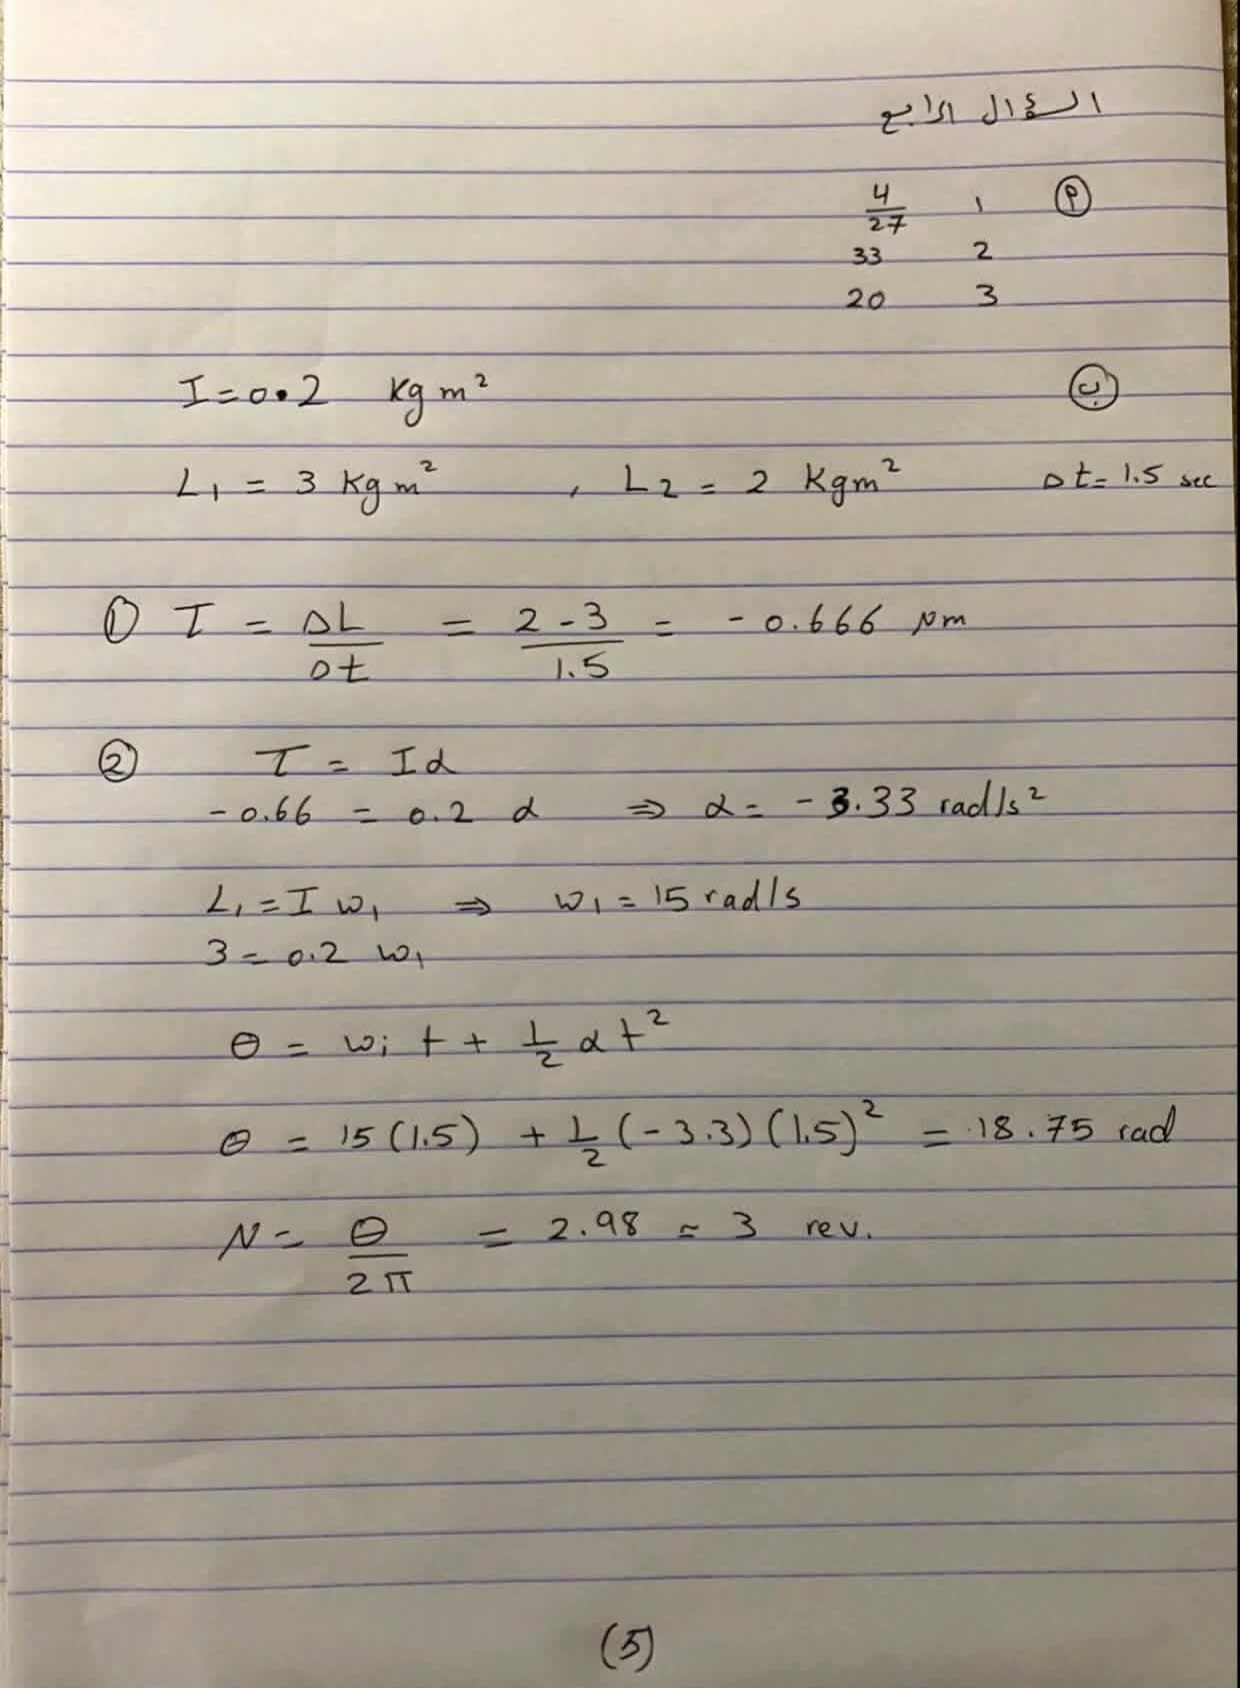 السؤال الرابع
أ 1 4/27
2 33
3 20
ب I = 0.2 Kg m²
L₁ = 3 Kg m² , L₂ = 2 Kgm² Δt = 1.5 sec
① τ = ΔL/Δt = 2 - 3/1.5 = - 0.666 Nm
② τ = Iα
- 0.66 = 0.2 α ⇒ α = - 3.33 rad/s²
L₁ = I w₁ ⇒ w₁ = 15 rad/s
3 = 0.2 w₁
θ = wi t + 1/2 α t²
θ = 15 (1.5) + 1/2 (- 3.3) (1.5)² = 18.75 rad
N = θ/2π = 2.98 ≈ 3 rev.
(5)